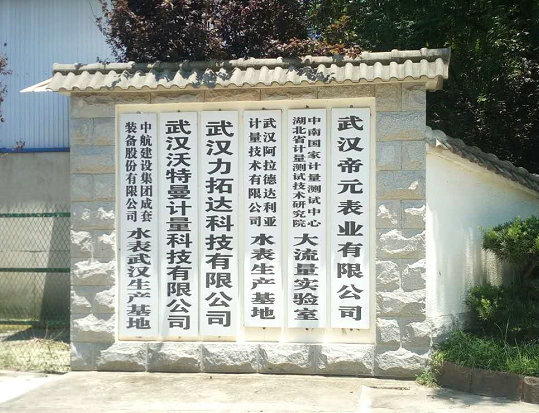 武汉帝元表业有限公司
中南国家计量测试中心
湖北省计量测试技术研究院
大流量实验室
武汉阿拉德达利亚
计量技术有限公司
水表生产基地
武汉力拓达科技有限公司
武汉沃特曼计量科技有限公司
中航建设集团成套
装备股份有限公司
水表武汉生产基地